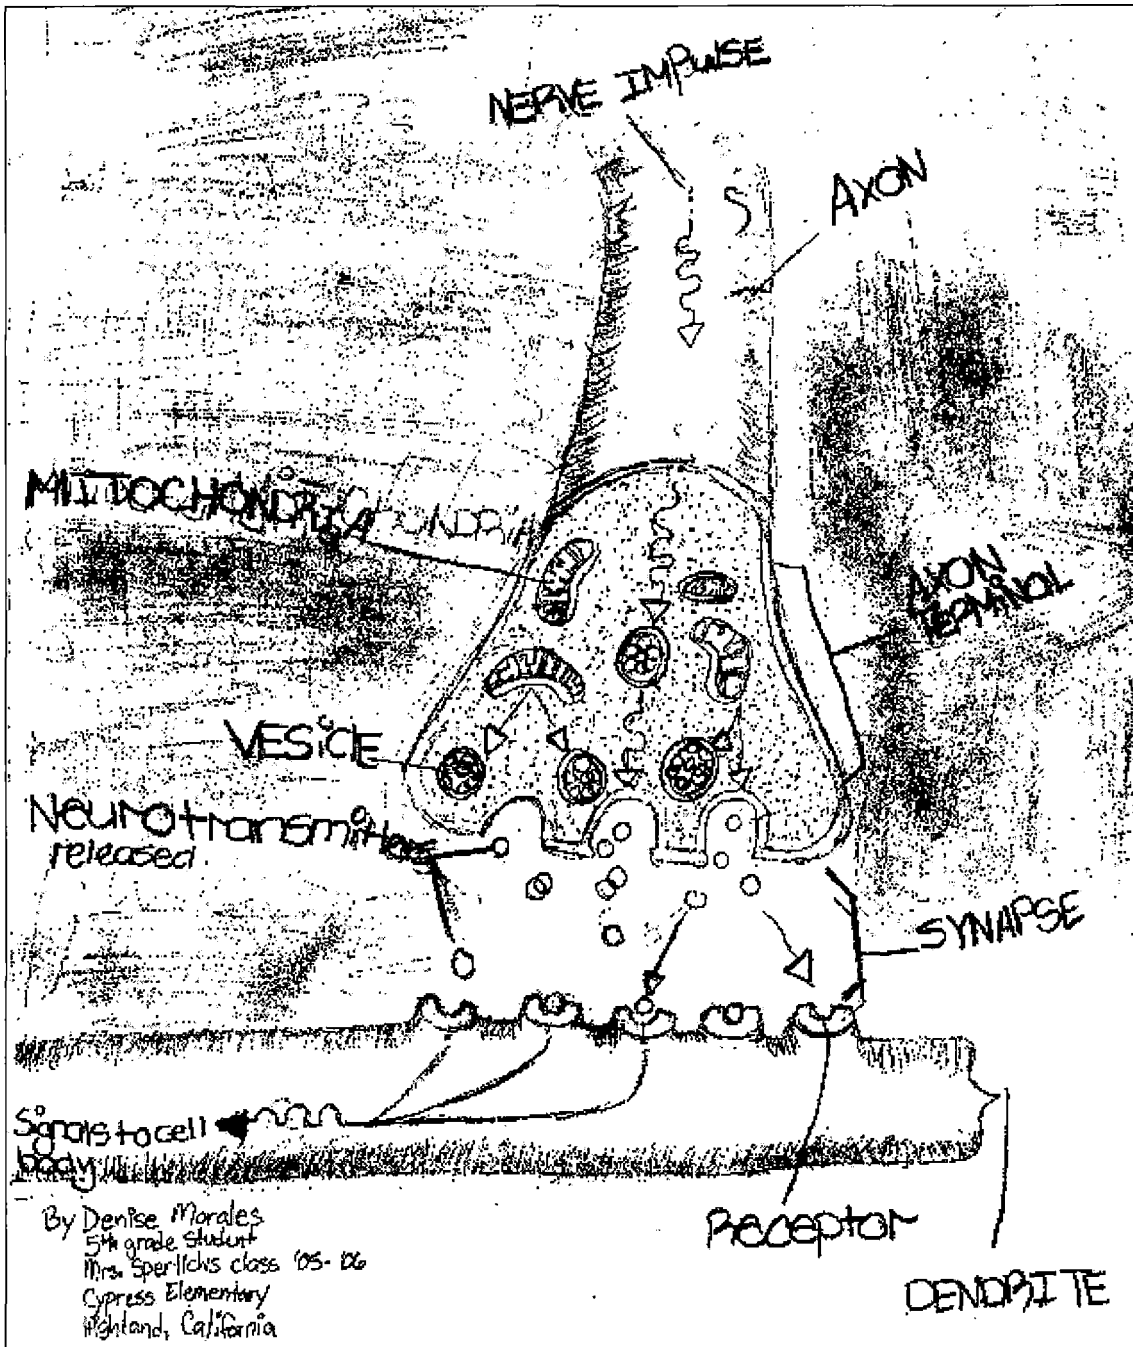 NERVE IMPULSE
AXON
MITOCHONDRIA
AXON
TERMINAL
VESICLE
Neurotransmitters
released
SYNAPSE
Signals to cell
body
Receptor
DENDRITE
By Denise Morales
5th grade student
Mrs. Sperlich's class '05-'06
Cypress Elementary
Highland, California